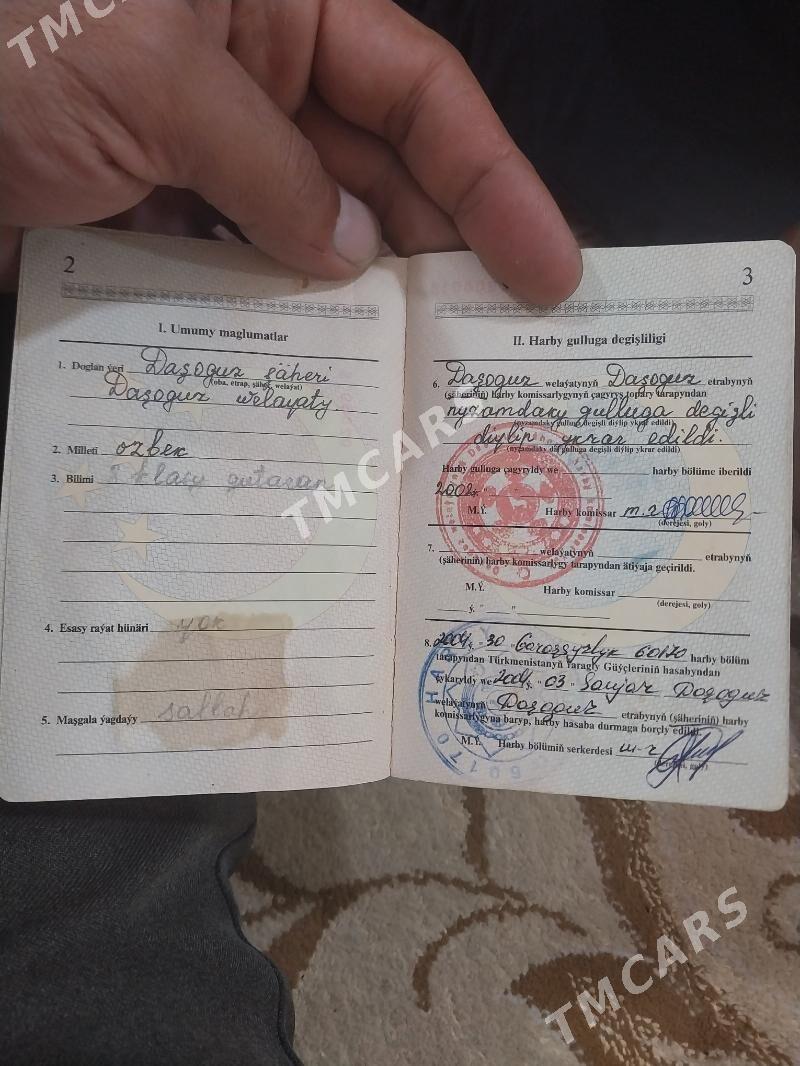 TMCARS
2
I. Umumy maglumatlar
1. Doglan ýeri Daşoguz şäheri
(oba, etrap, şäher, welaýat)
Daşoguz welaýaty.
2. Milleti özbek
3. Bilimi klasy gutaran
4. Esasy raýat hünäri ýok
5. Maşgala ýagdaýy sallah
3
II. Harby gulluga degişliligi
6. Daşoguz welaýatynyň Daşoguz etrabynyň
(şäheriniň) harby komissarlygynyň çagyryş topary tarapyndan
nyzamdaky gulluga degişli
(nyzamdaky gulluga degişli diýlip ykrar edildi)
diýlip ykrar edildi.
(nyzamdaky däl gulluga degişli diýlip ykrar edildi)
Harby gulluga çagyryldy we harby bölüme iberildi
2002ý. "
M.Ý. Harby komissar m.g
(derejesi, goly)
7. welaýatynyň etrabynyň
(şäheriniň) harby komissarlygy tarapyndan ätiýaja geçirildi.
M.Ý. Harby komissar
(derejesi, goly)
ý. " "
8. 2004ý. "30" Garaşsyzlyk 60170 harby bölüm
tarapyndan Türkmenistanyň Ýaragly Güýçleriniň hasabyndan
çykaryldy we 2004ý. "03" Sanjar Daşoguz
welaýatynyň Daşoguz etrabynyň (şäheriniň) harby
komissarlygyna baryp, harby hasaba durmaga borçly edildi.
M.Ý. Harby bölümiň serkerdesi
(derejesi, goly)
60170
TMCARS
TMCARS